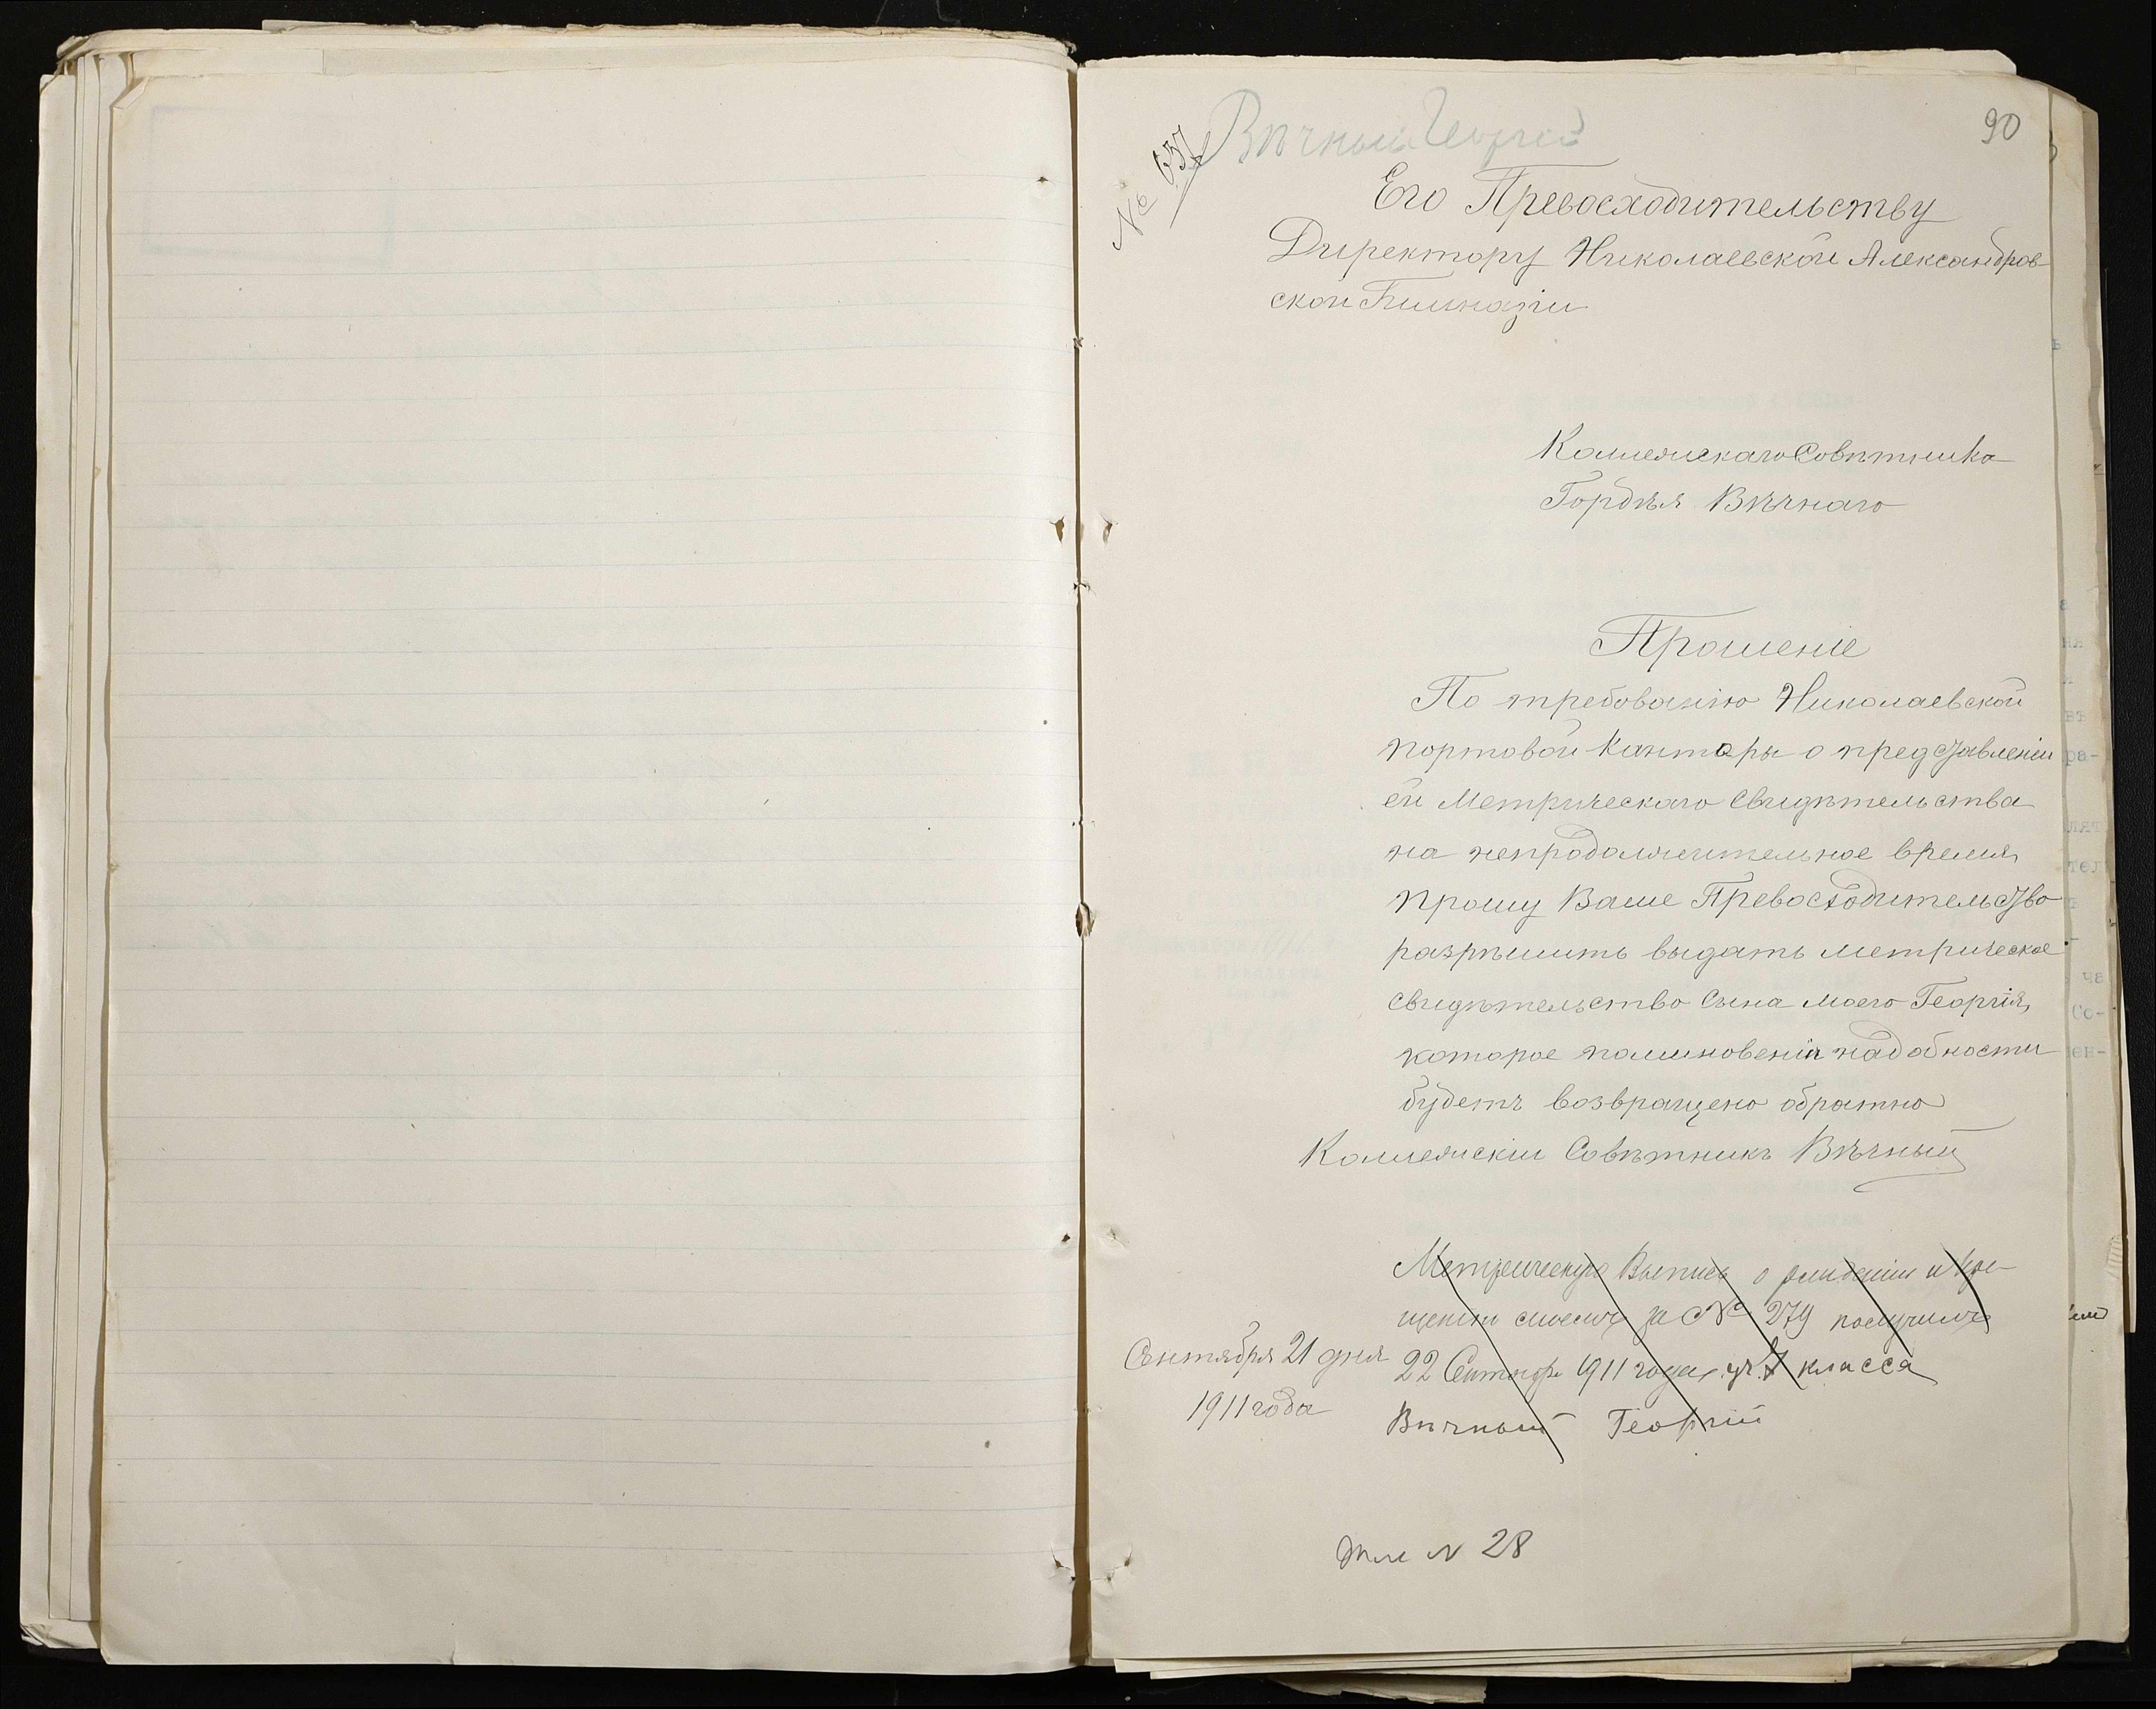 90
№ 637
Вѣчный Георгій
Его Превосходительству
Директору Николаевской Александров-
ской Гимназіи
Коллежскаго Совѣтника
Гордѣя Вѣчнаго
Прошеніе
По требованію Николаевской
портовой Канторы о представленіи
ей Метрическаго Свидѣтельства
на непродолжительное время,
прошу Ваше Превосходительство
разрѣшить выдать метрическое
свидѣтельство Сына моего Георгія,
которое поминовеніи надобности
будетъ возвращено обратно
Коллежскій Совѣтникъ Вѣчный
Метрическую Выпись о рожденіи и кре-
щеніи за № 279 получилъ
Сентября 21 дня
1911 года
22 Сентябр 1911 года, уч. 7 класса
Вѣчный Георгій
№ 28